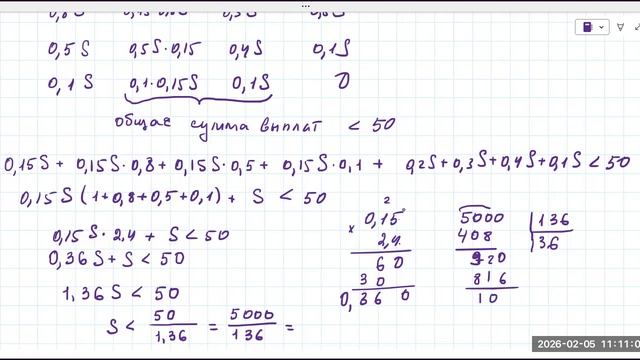 0,5 S 0,5S·0,15 0,4S 0,1S
0,1 S 0,1·0,15S 0,1S 0
общая сумма выплат < 50
0,15S + 0,15S·0,8 + 0,15S·0,5 + 0,15S·0,1 + 0,2S+0,3S+0,4S+0,1S < 50
0,15S (1+0,8+0,5+0,1) + S < 50
0,15S · 2,4 + S < 50
0,36S + S < 50
1,36S < 50
S < 50/1,36 = 5000/136 =
2
× 0,15
2,4
60
30
0,360
5000 136
408 36
920
816
10
2026-02-05 11:11:0